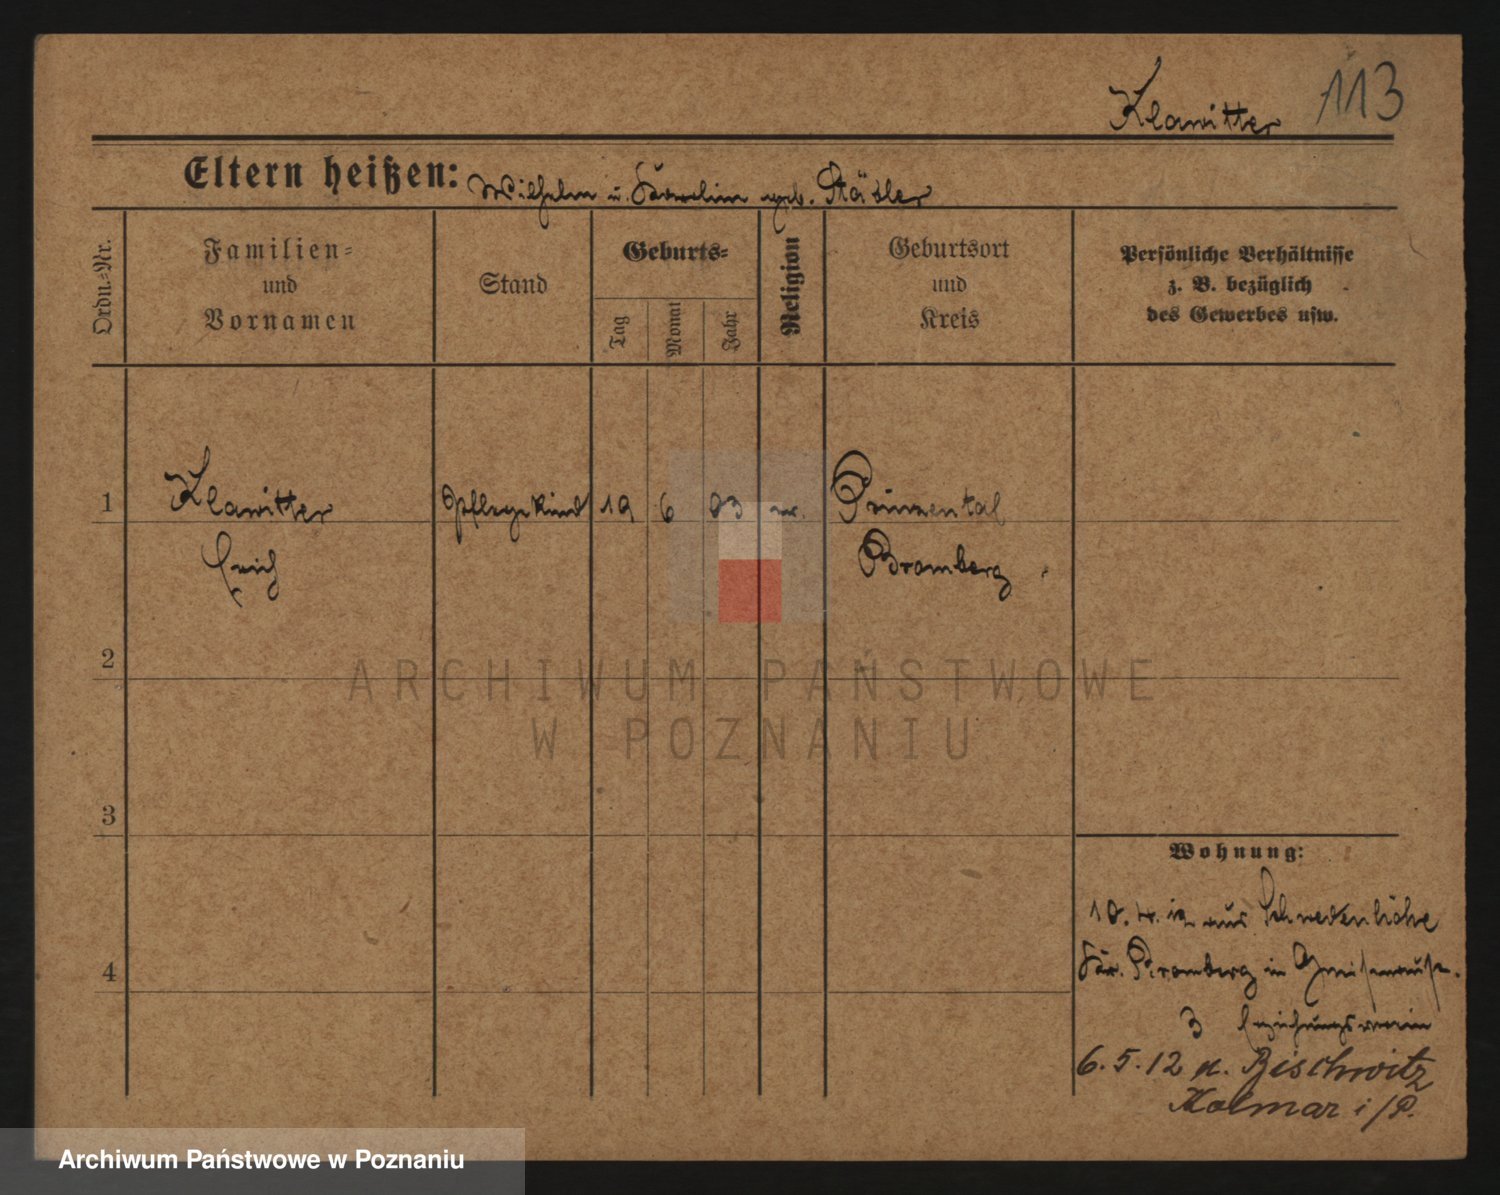 Klawitter 113
Eltern heißen: Wilhelm u. Karolin geb. Städler
Ordn.=Nr.
Familien=
und
Vornamen
Stand
Geburts=
Tag
Monat
Jahr
Religion
Geburtsort
und
Kreis
Persönliche Verhältnisse
z. B. bezüglich
des Gewerbes usw.
1 Klawitter Pflegekind 19 6 03 ev. Prinzental
Erich Bromberg
2
3
4
Wohnung:
10.4.12 aus
Kr. Bromberg in
3 Erziehungsverein
6.5.12 n. Bischwitz
Kolmar i/P.
ARCHIWUM PAŃSTWOWE
W POZNANIU
Archiwum Państwowe w Poznaniu